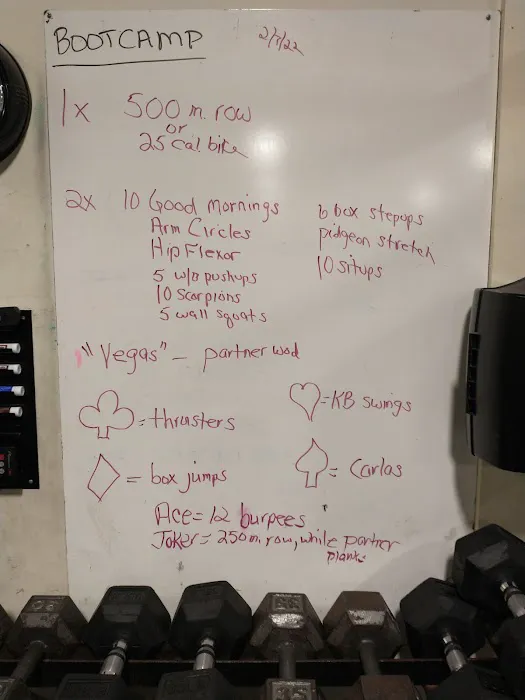 BOOTCAMP 2/7/22
1x 500 m. row
or
25 cal bike
2x 10 Good Mornings
Arm Circles
Hip Flexor
5 w/o pushups
10 Scorpions
5 wall squats
6 box stepups
pidgeon stretch
10 situps
"Vegas" - partner wod
= thrusters
= KB swings
= box jumps
= Carlas
Ace = 12 burpees
Joker = 250 m. row, while partner
planks